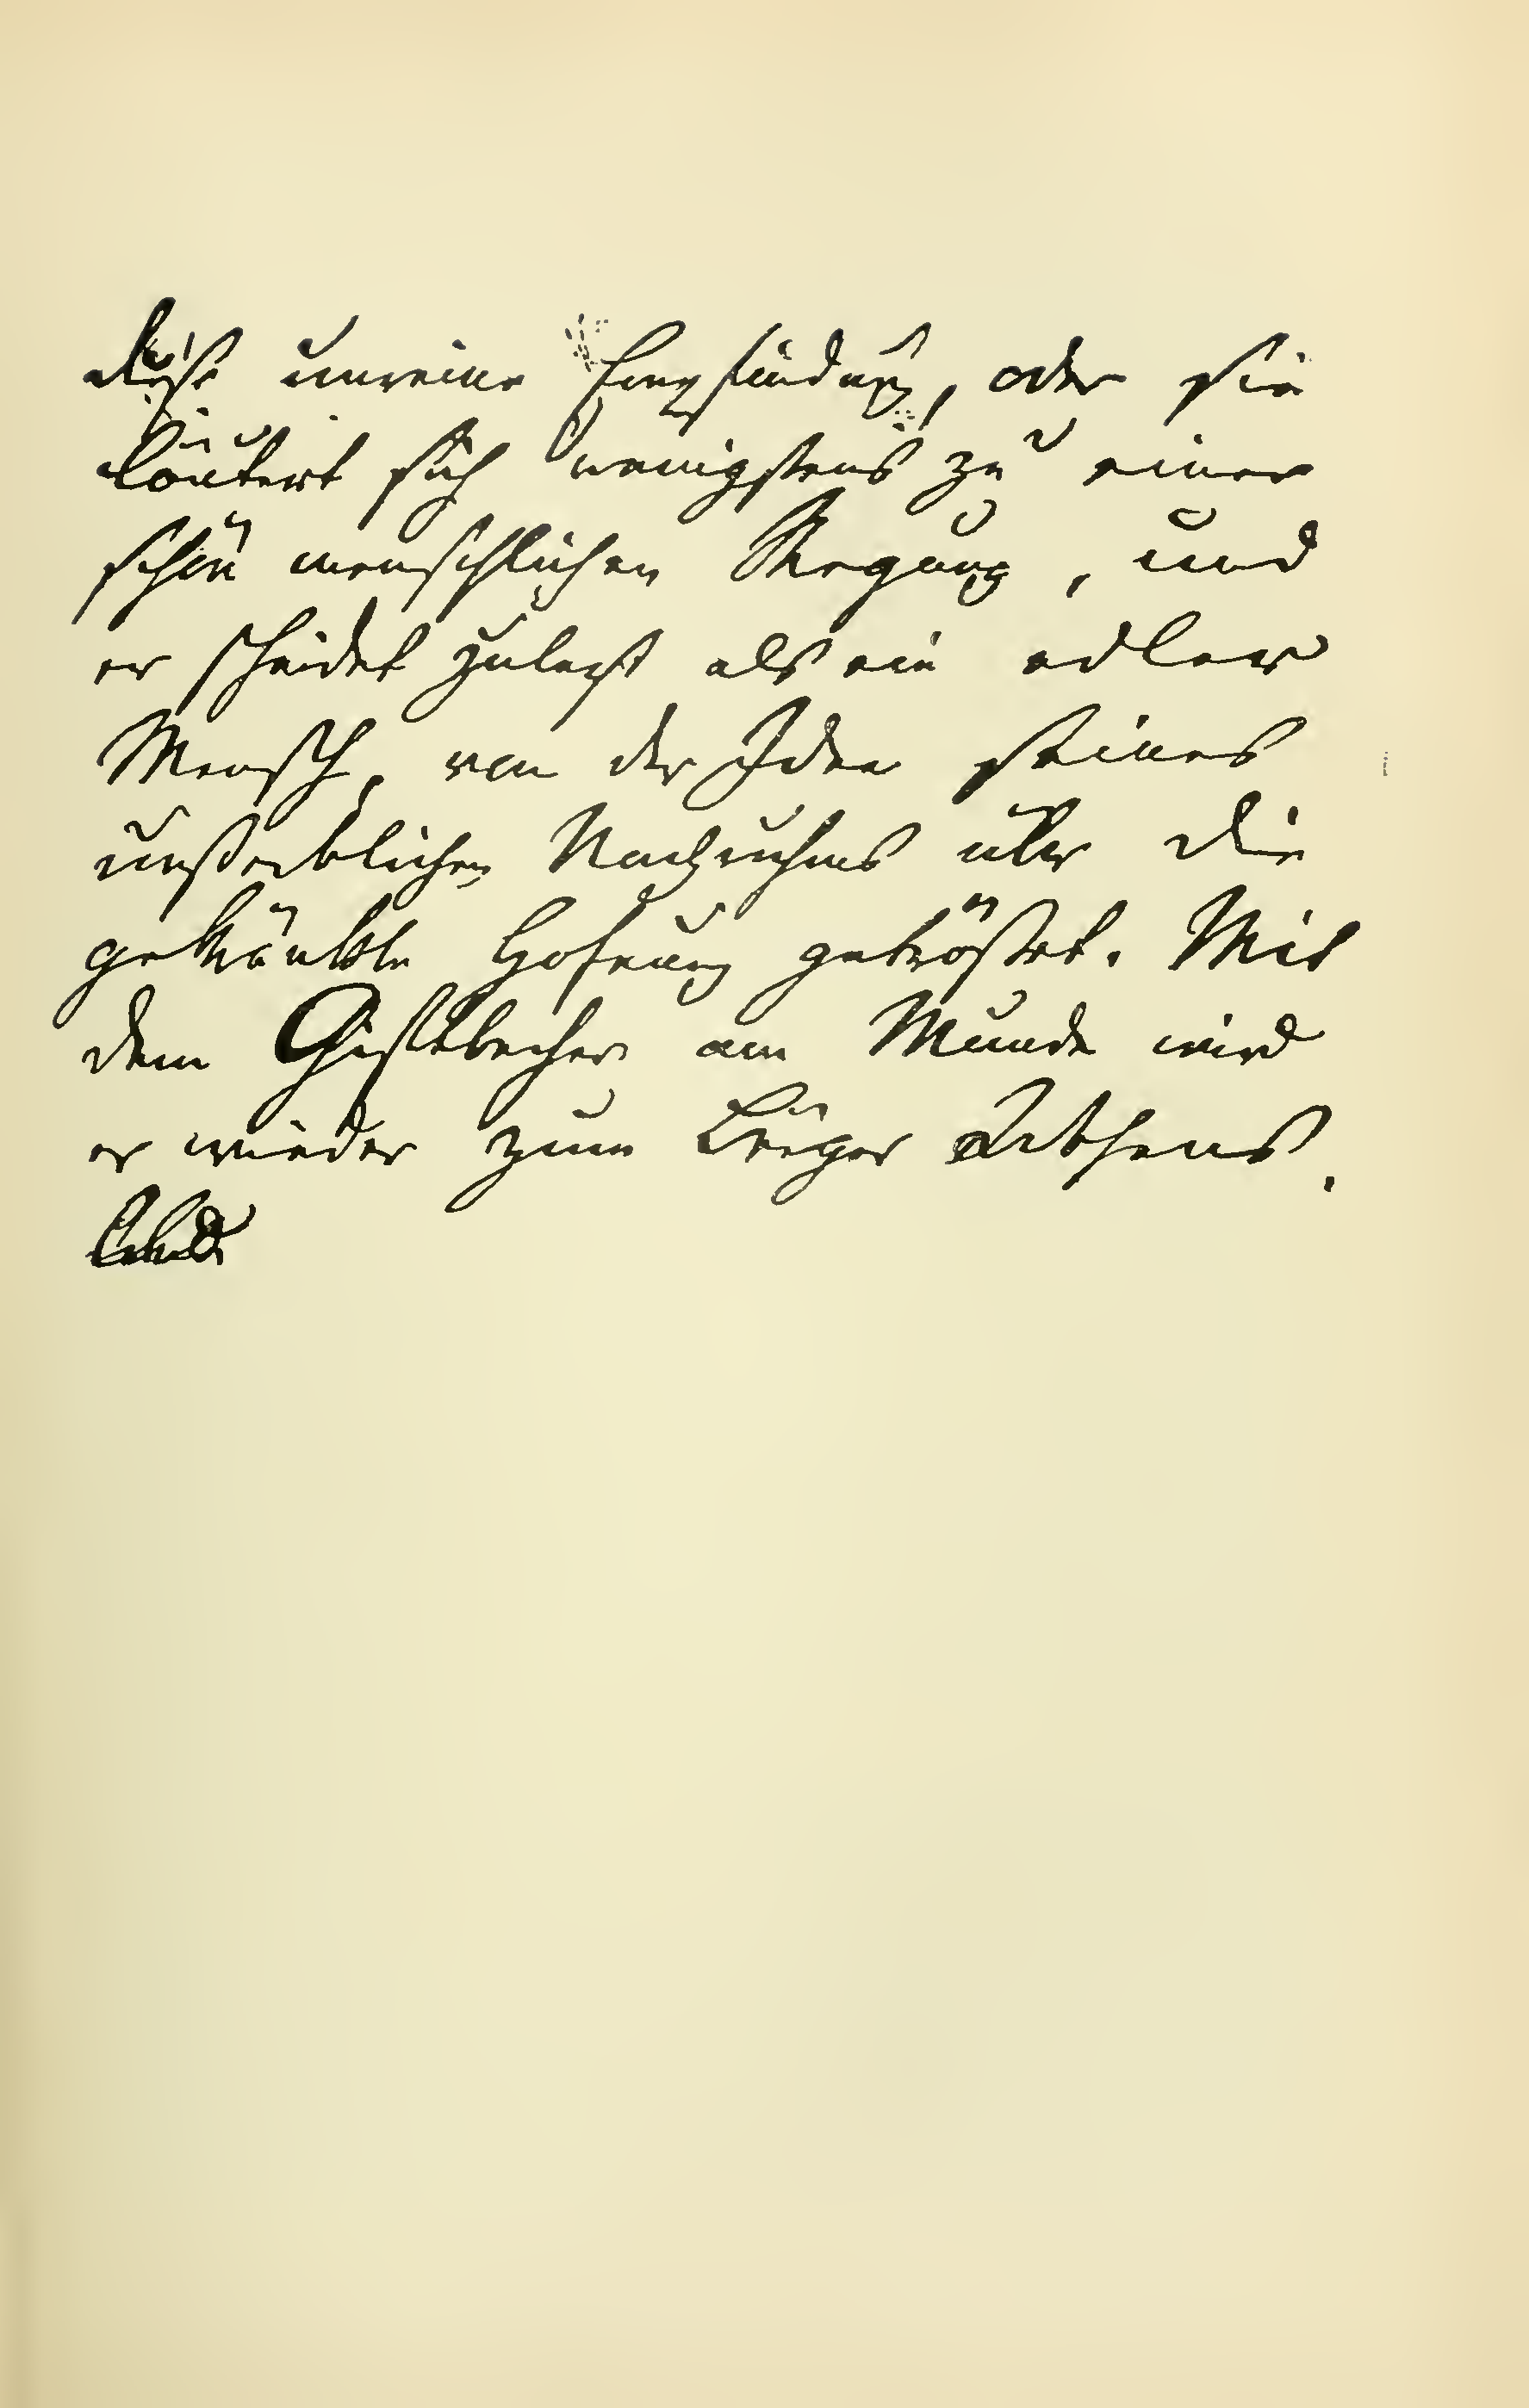 diese unreine Empfindung, oder sie
läutert sich wenigstens zu einer
schön menschlichen Regung, und
er scheidet zulezt als ein edler
Mensch, von der Idee seines
unsterblichen Nachruhms über die
gekränkte Hofnung getröstet. Mit
dem Giftbecher am Munde wird
er wieder zum Bürger Athens.